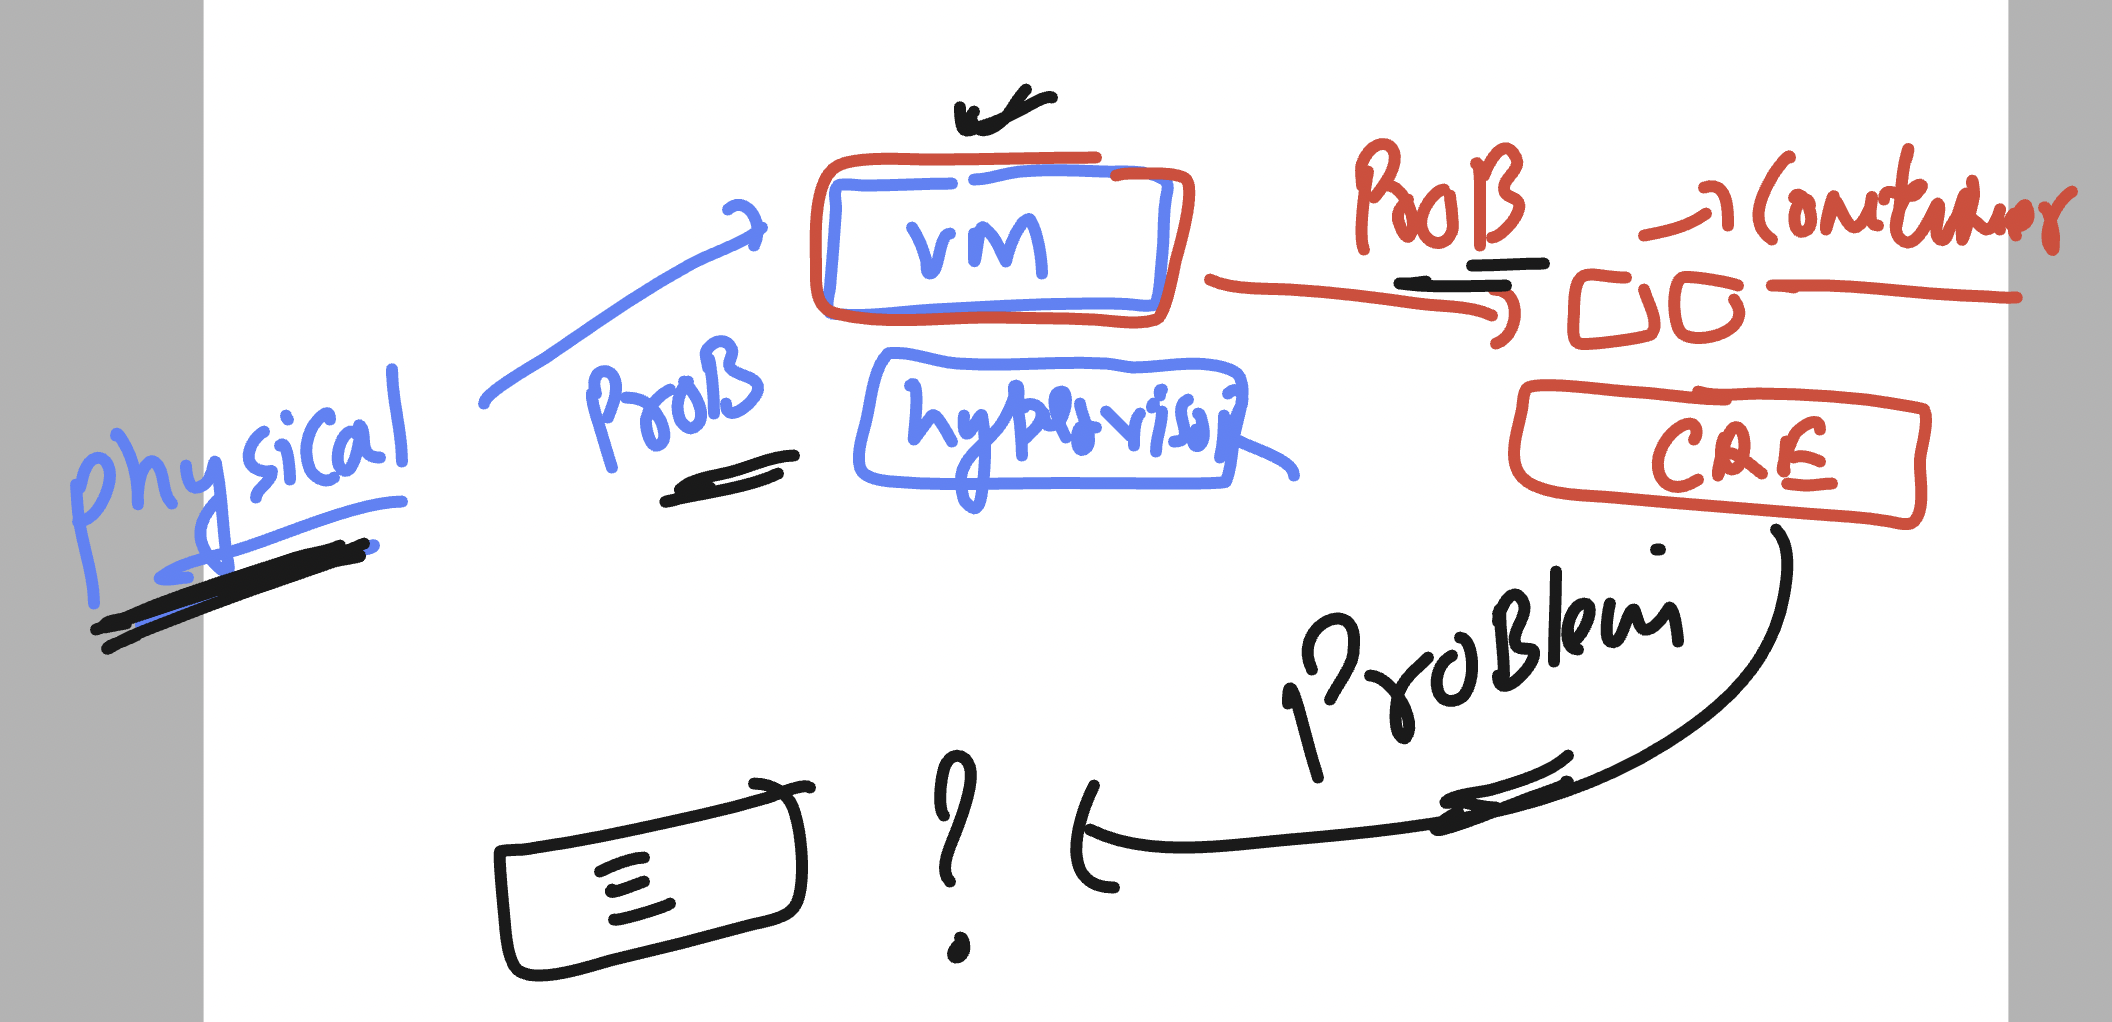 physical
ProB
VM
hypervisor
ProB
Container
CRE
ProBlem
?